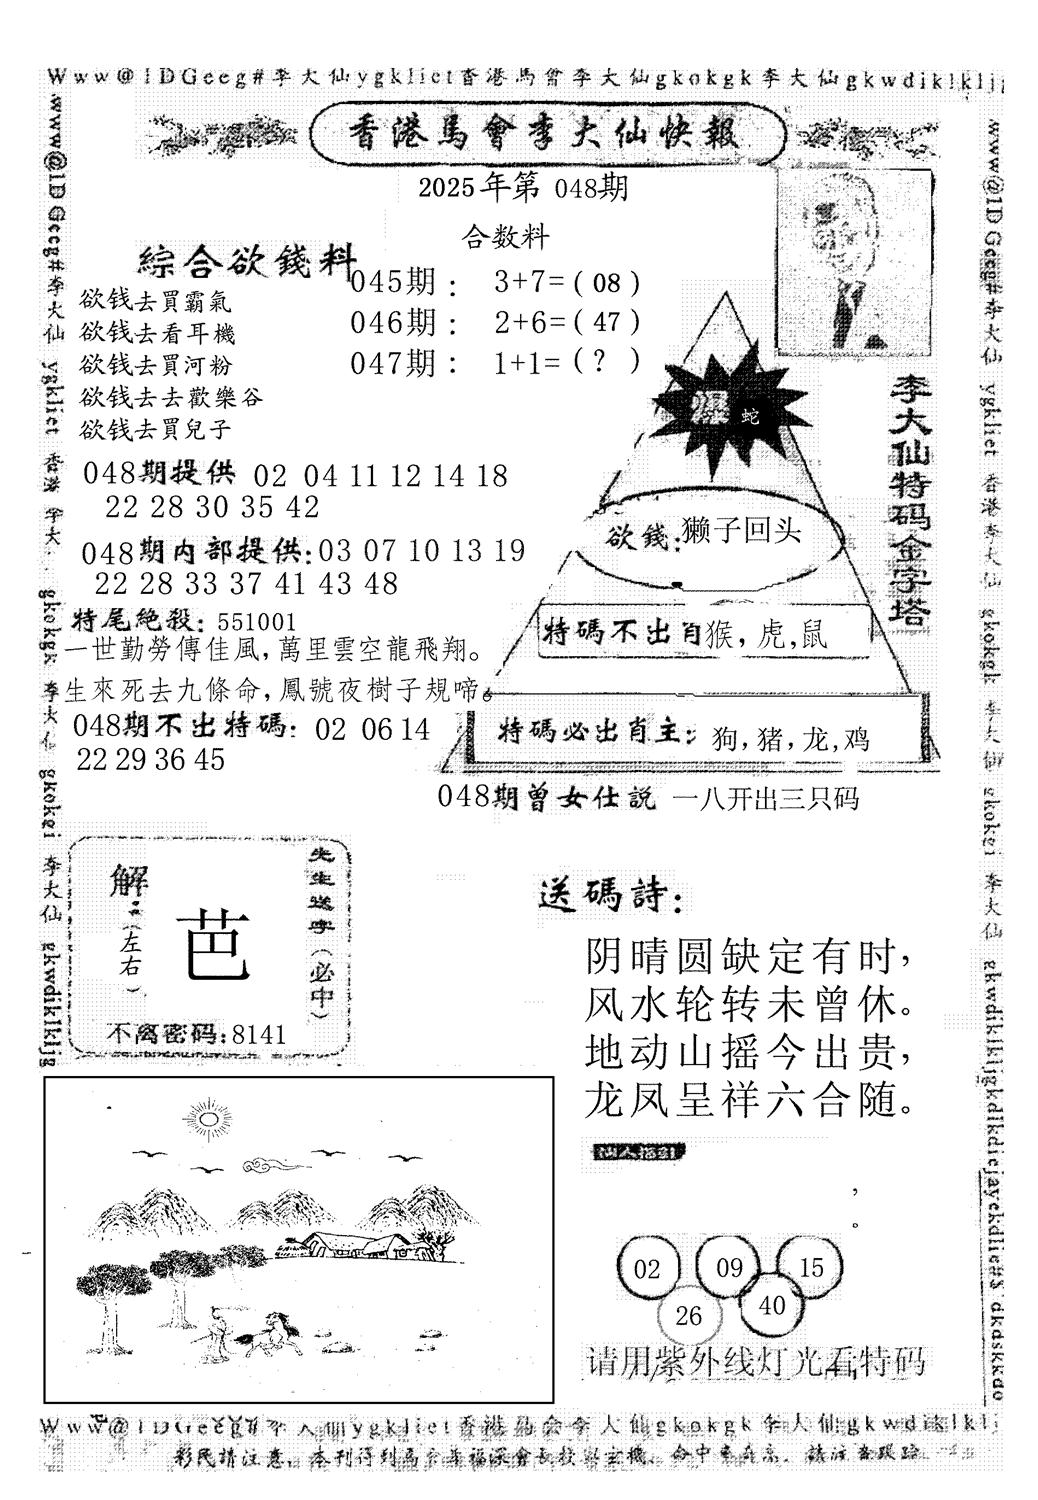 Www@1DGeeg#李大仙ygkliet香港馬會李大仙gkokgk李大仙gkwdiklklj
香港馬會李大仙快報
2025年第 048期
合数料
綜合欲錢料
045期： 3+7=( 08 )
046期： 2+6=( 47 )
047期： 1+1=( ? )
欲钱去買霸氣
欲钱去看耳機
欲钱去買河粉
欲钱去去歡樂谷
欲钱去買兒子
蛇
李大仙特码金字塔
048期提供 02 04 11 12 14 18
22 28 30 35 42
欲錢:獭子回头
048期内部提供:03 07 10 13 19
22 28 33 37 41 43 48
特尾絶殺: 551001
一世勤勞傳佳風,萬里雲空龍飛翔。
生來死去九條命,鳳號夜樹子規啼。
特碼不出肖猴,虎,鼠
048期不出特碼: 02 06 14
22 29 36 45
特碼必出肖主: 狗,猪,龙,鸡
048期曾女仕説 一八开出三只码
解:(左右)
芭
先生送字(必中)
不离密码:8141
送碼詩:
阴晴圆缺定有时,
风水轮转未曾休。
地动山摇今出贵,
龙凤呈祥六合随。
,
。
02 09 15
26 40
请用紫外线灯光看特码
www@1DGeeg#李大仙 ygkliet 香港 李大 gkokgk 李大仙 gkokei 李大仙 gkwdiklkljg
www@1DGeeg#李大仙 ygkliet 香港李大仙 gkokgk 李大仙 gkokei 李大仙